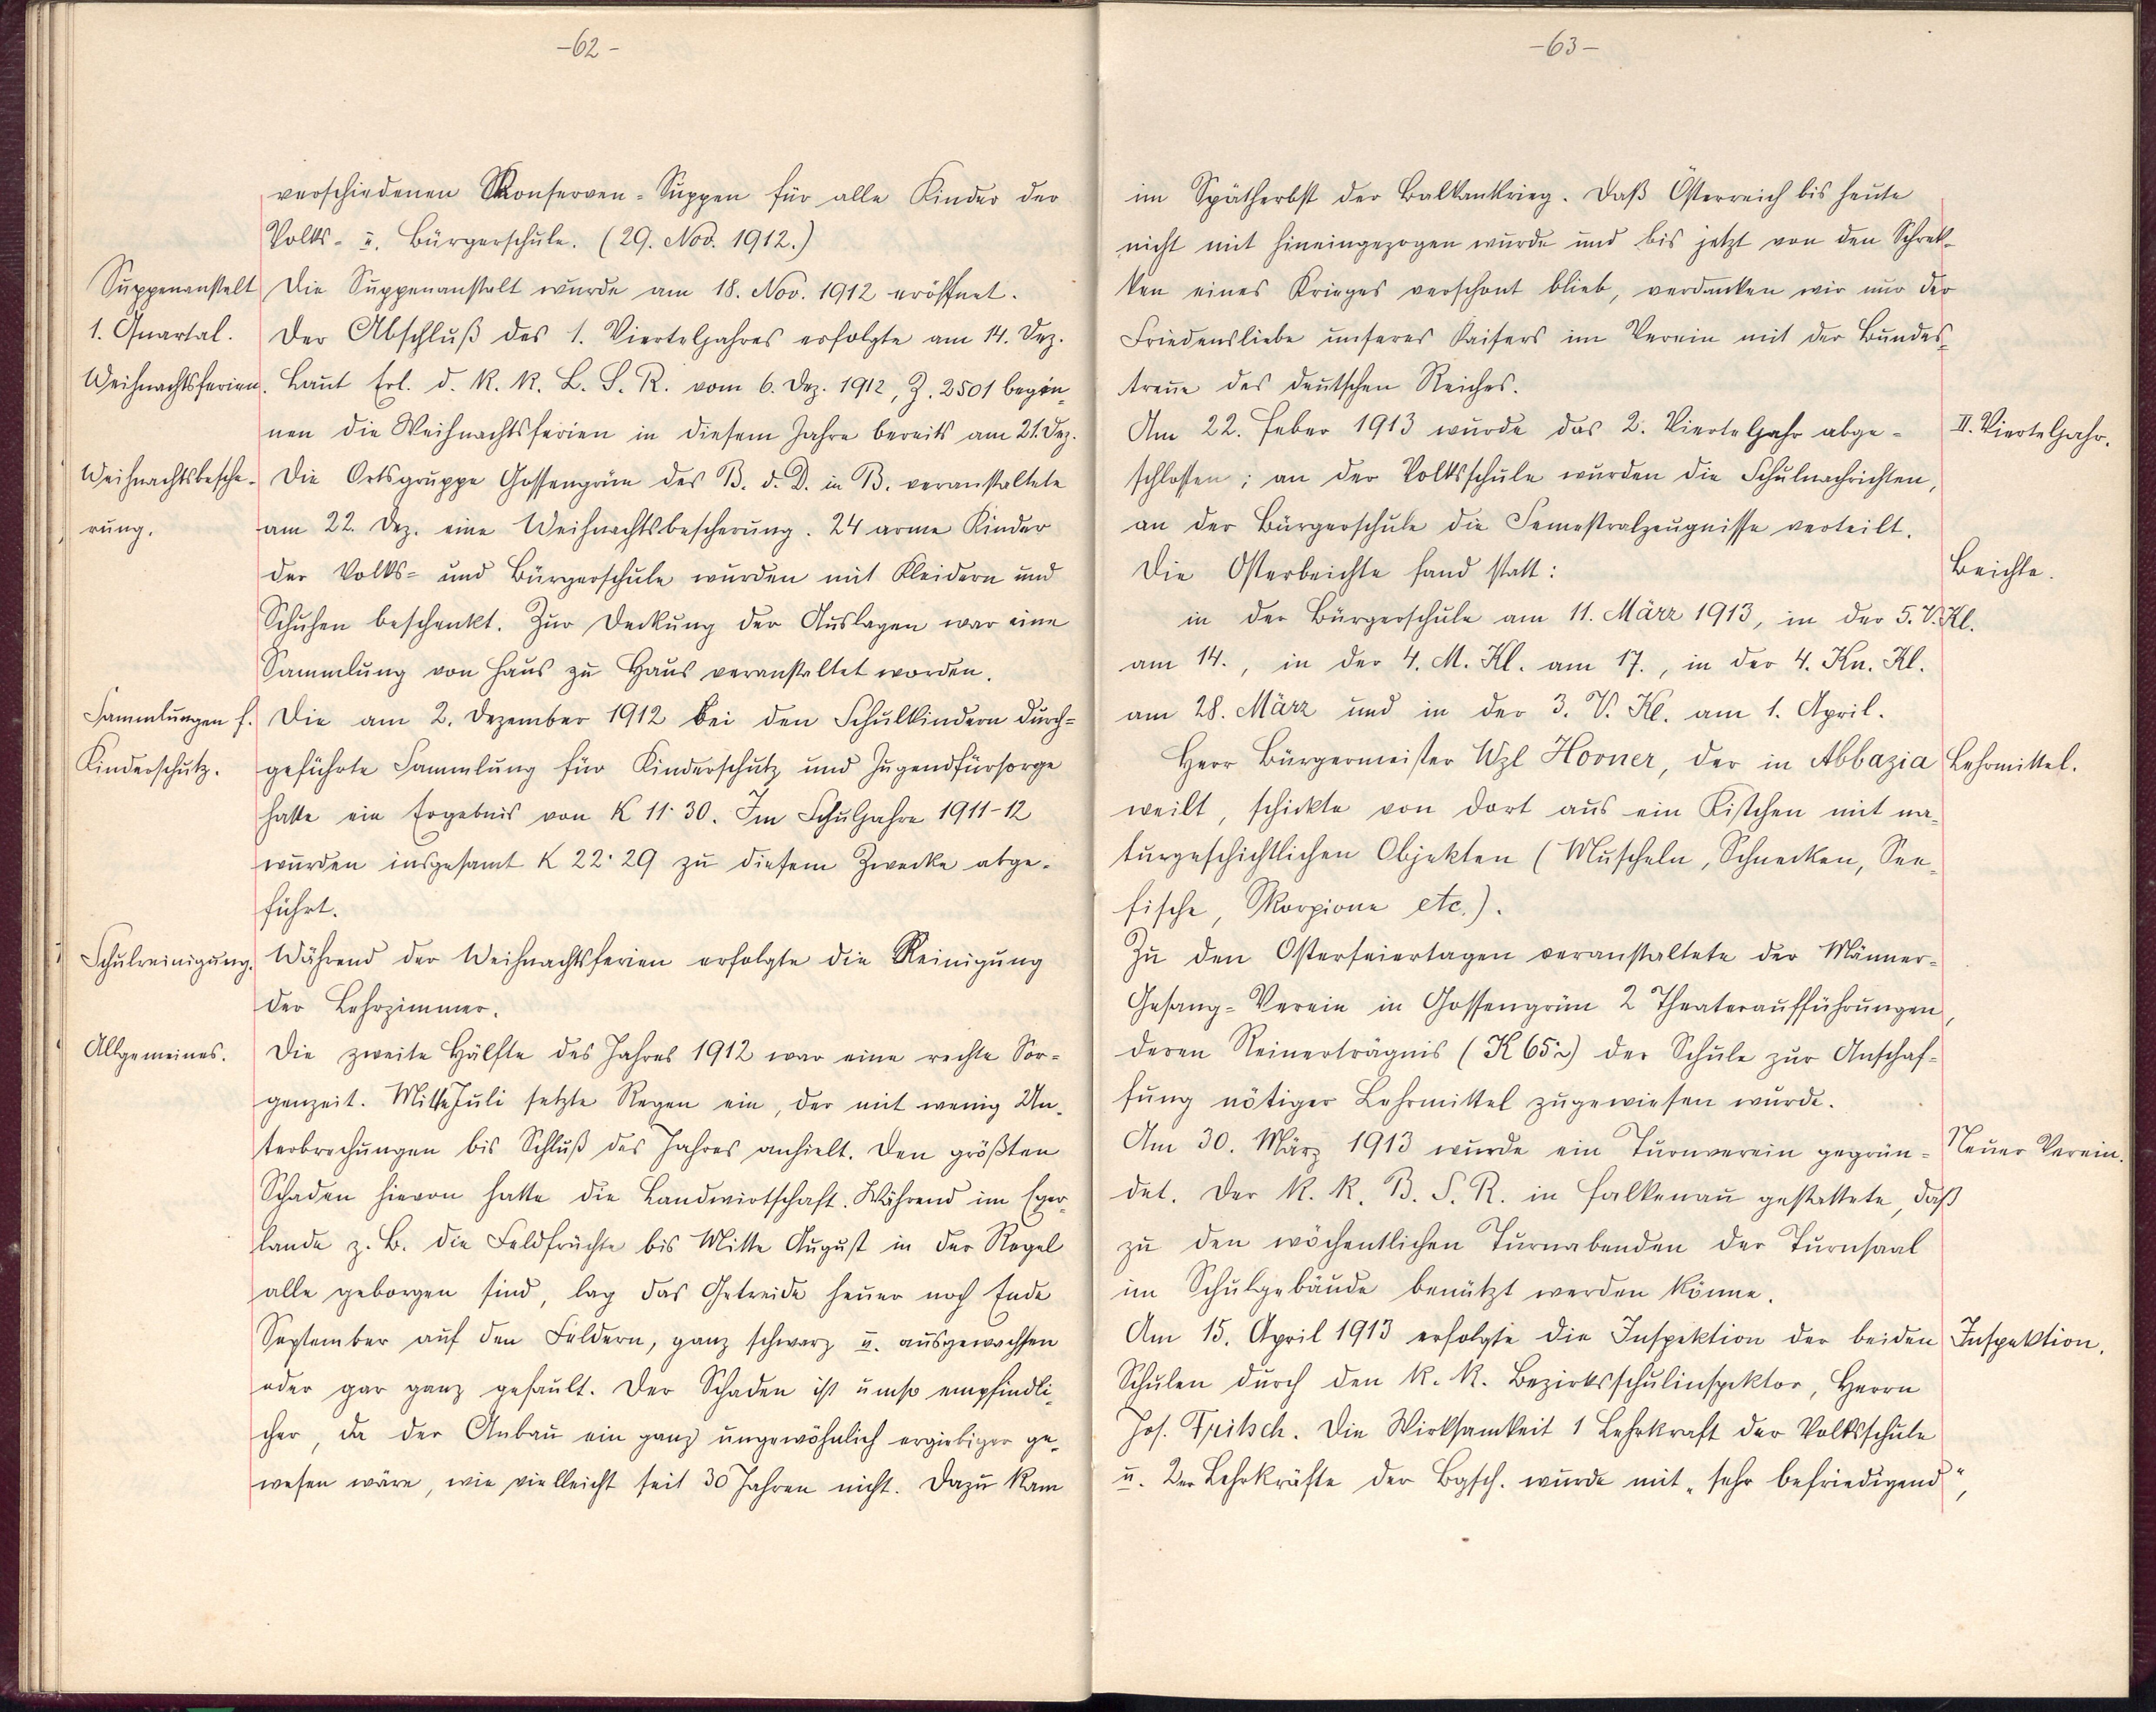 -62-
verschiedenen Konserven-Suppen für alle Kinder der
Volks- u. Bürgerschule. (29. Nov. 1912.)
Suppenanstalt Die Suppenanstalt wurde am 18. Nov. 1912 eröffnet.
1. Quartal. Der Abschluß des 1. Vierteljahres erfolgte am 14. Dez.
Weihnachtsferien. Laut Erl. d. k. k. L. S. R. vom 6. Dez. 1912, Z. 2501 begin-
nen die Weihnachtsferien in diesem Jahre bereits am 21. Dez.
Weihnachtsbesche- Die Ortsgruppe Gossengrün des B. d. D. in B. veranstaltete
rung. am 22. Dez. eine Weihnachtsbescherung. 24 arme Kinder
der Volks- und Bürgerschule wurden mit Kleidern und
Schuhen beschenkt. Zur Deckung der Auslagen war eine
Sammlung von Haus zu Haus veranstaltet worden.
Sammlungen f. Die am 2. Dezember 1912 bei den Schulkindern durch-
Kinderschutz. geführte Sammlung für Kinderschutz und Jugendfürsorge
hatte ein Ergebnis von K 11·30. Im Schuljahre 1911-12
wurden insgesamt K 22·29 zu diesem Zwecke abge-
führt.
Schulreinigung. Während der Weihnachtsferien erfolgte die Reinigung
der Lehrzimmer.
Allgemeines. Die zweite Hälfte des Jahres 1912 war eine rechte Sor-
genzeit. Mitte Juli setzte Regen ein, der mit wenig Un-
terbrechungen bis Schluß des Jahres anhielt. Den größten
Schaden hievon hatte die Landwirtschaft. Während im Eger-
lande z. B. die Feldfrüchte bis Mitte August in der Regel
alle geborgen sind, lag das Getreide heuer noch Ende
September auf den Feldern, ganz schwarz u. ausgewachsen
oder gar ganz gefault. Der Schaden ist umso empfindli-
cher, da der Anbau ein ganz ungewöhnlich ergiebiger ge-
wesen wäre, wie vielleicht seit 30 Jahren nicht. Dazu kam
-63-
im Spätherbst der Balkankrieg. Daß Österreich bis heute
nicht mit hineingezogen wurde und bis jetzt von den Schrek-
ken eines Krieges verschont blieb, verdanken wir nur der
Friedensliebe unseres Kaisers im Verein mit der Bundes-
treue des deutschen Reiches.
Am 22. Feber 1913 wurde das 2. Vierteljahr abge- II. Vierteljahr.
schlossen; an der Volksschule wurden die Schulnachrichten,
an der Bürgerschule die Semestralzeugnisse verteilt.
Die Osterbeichte fand statt: Beichte.
in der Bürgerschule am 11. März 1913, in der 5. V. Kl.
am 14., in der 4. M. Kl. am 17., in der 4. Kn. Kl.
am 28. März und in der 3. V. Kl. am 1. April.
Herr Bürgermeister Wzl Horner, der in Abbazia Lehrmittel.
weilt, schickte von dort aus ein Kistchen mit na-
turgeschichtlichen Objekten (Muscheln, Schnecken, See-
fische, Skorpione etc.).
Zu den Osterfeiertagen veranstaltete der Männer-
Gesang-Verein in Gossengrün 2 Theateraufführungen,
deren Reinerträgnis (K 65·-) der Schule zur Anschaf-
fung nötiger Lehrmittel zugewiesen wurde.
Am 30. März 1913 wurde ein Turnverein gegrün- Neuer Verein.
det. Der k. k. B. S. R. in Falkenau gestattete, daß
zu den wöchentlichen Turnabenden der Turnsaal
im Schulgebäude benützt werden könne.
Am 15. April 1913 erfolgte die Inspektion der beiden Inspektion.
Schulen durch den k. k. Bezirksschulinspektor, Herrn
Jos. Fritsch. Die Wirksamkeit 1 Lehrkraft der Volksschule
u. 2er Lehrkräfte der Bgsch. wurde mit „sehr befriedigend",